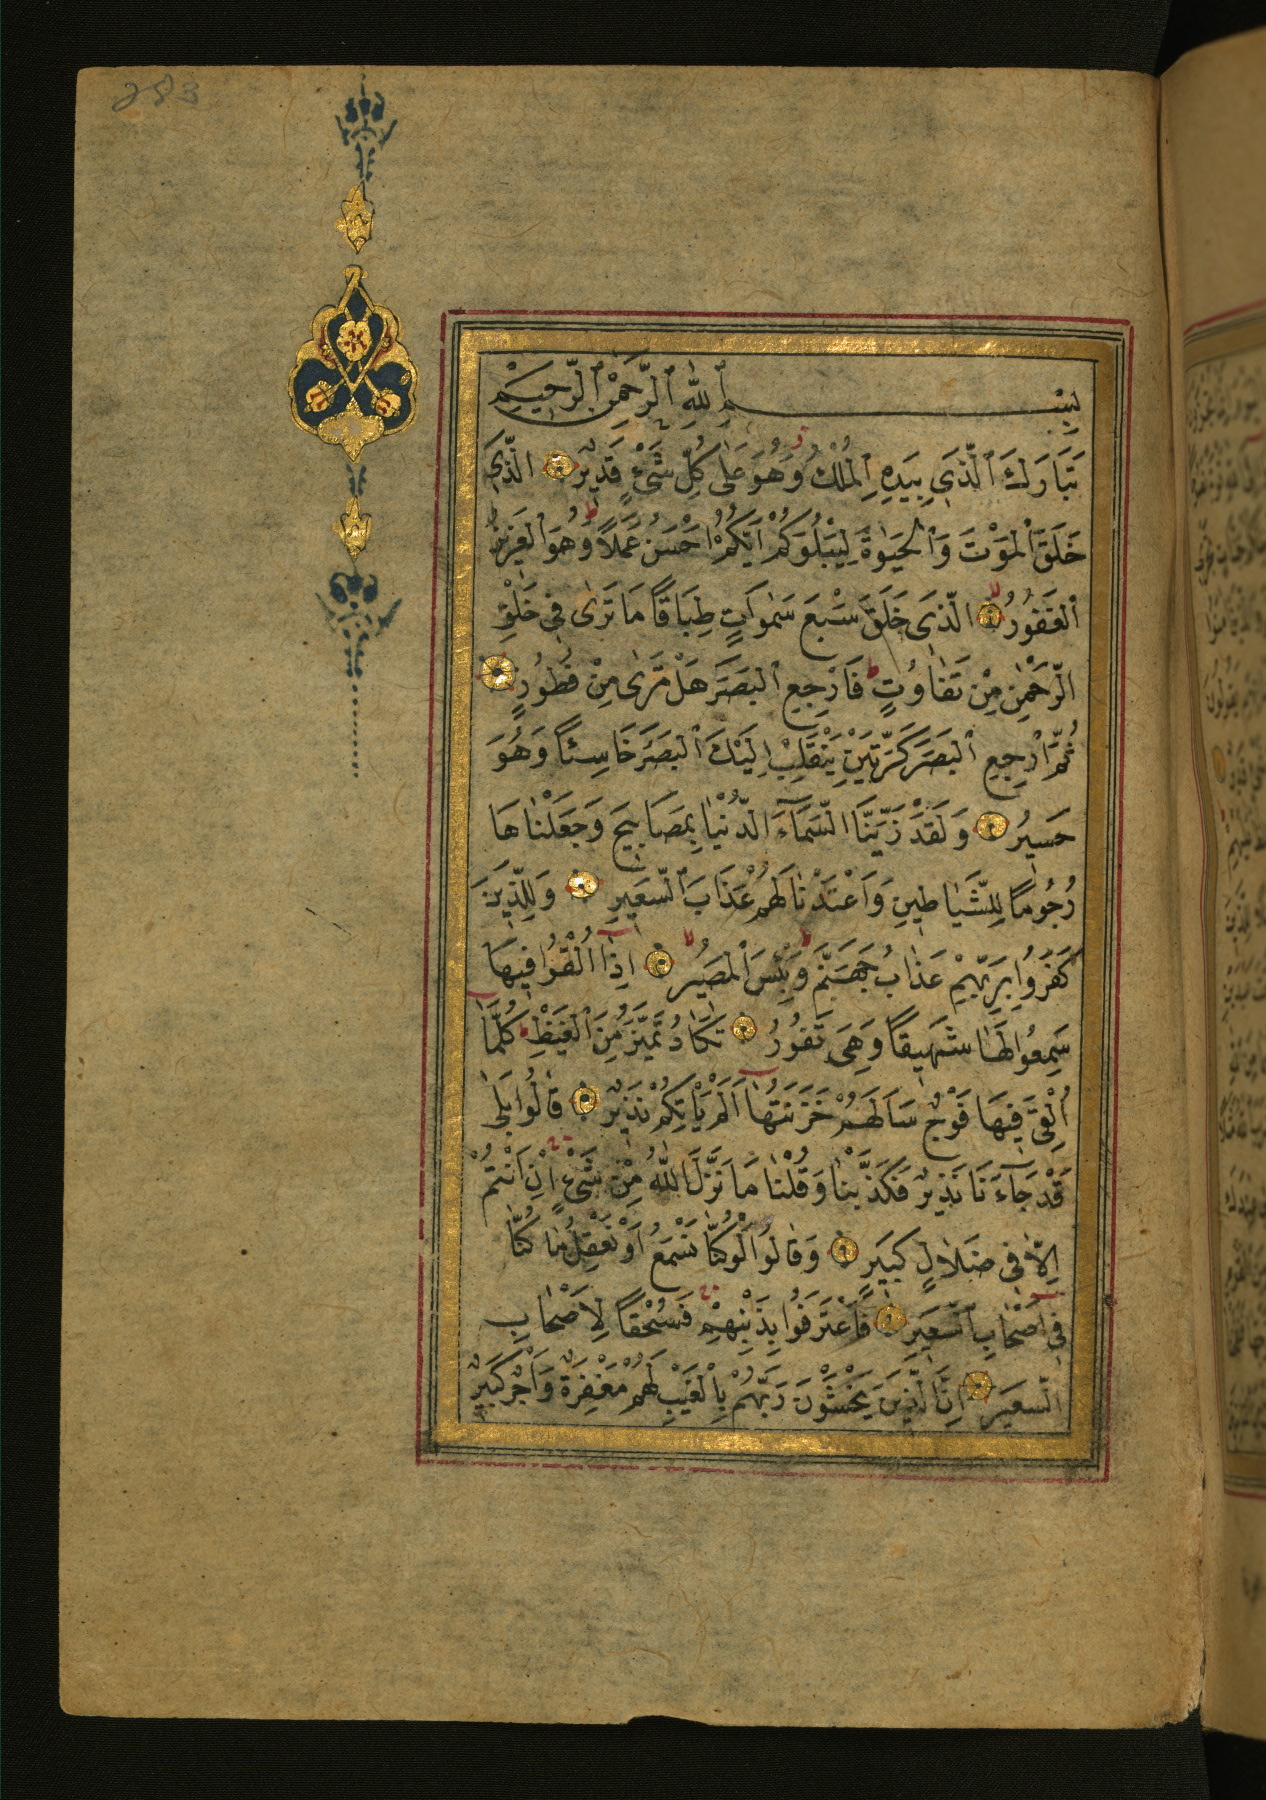 253
بِسْمِ ٱللّٰهِ ٱلرَّحْمٰنِ ٱلرَّحِيمِ
تَبَارَكَ ٱلَّذِي بِيَدِهِ ٱلْمُلْكُ وَهُوَ عَلٰى كُلِّ شَيْءٍ قَدِيرٌ الَّذِي
خَلَقَ ٱلْمَوْتَ وَٱلْحَيٰوةَ لِيَبْلُوَكُمْ اَيُّكُمْ اَحْسَنُ عَمَلاً وَهُوَ ٱلْعَزِيزُ
ٱلْغَفُورُ الَّذِي خَلَقَ سَبْعَ سَمٰوَاتٍ طِبَاقًا مَا تَرٰى فِي خَلْقِ
الرَّحْمٰنِ مِنْ تَفَاوُتٍ فَارْجِعِ ٱلْبَصَرَ هَلْ تَرٰى مِنْ فُطُورٍ
ثُمَّ ٱرْجِعِ ٱلْبَصَرَ كَرَّتَيْنِ يَنْقَلِبْ اِلَيْكَ ٱلْبَصَرُ خَاسِئًا وَهُوَ
حَسِيرٌ وَلَقَدْ زَيَّنَّا السَّمَآءَ الدُّنْيَا بِمَصَابِيحَ وَجَعَلْنَاهَا
رُجُومًا لِلشَّيَاطِينِ وَاَعْتَدْنَا لَهُمْ عَذَابَ ٱلسَّعِيرِ وَلِلَّذِينَ
كَفَرُوا بِرَبِّهِمْ عَذَابُ جَهَنَّمَ وَبِئْسَ ٱلْمَصِيرُ اِذَآ اُلْقُوا فِيهَا
سَمِعُوا لَهَا شَهِيقًا وَهِيَ تَفُورُ تَكَادُ تَمَيَّزُ مِنَ ٱلْغَيْظِ كُلَّمَآ
اُلْقِيَ فِيهَا فَوْجٌ سَاَلَهُمْ خَزَنَتُهَآ اَلَمْ يَاْتِكُمْ نَذِيرٌ قَالُوا بَلٰى
قَدْ جَآءَنَا نَذِيرٌ فَكَذَّبْنَا وَقُلْنَا مَا نَزَّلَ اللّٰهُ مِنْ شَيْءٍ اِنْ اَنْتُمْ
اِلَّا فِي ضَلَالٍ كَبِيرٍ وَقَالُوا لَوْ كُنَّا نَسْمَعُ اَوْ نَعْقِلُ مَا كُنَّا
فِي اَصْحَابِ ٱلسَّعِيرِ فَاعْتَرَفُوا بِذَنْبِهِمْ فَسُحْقًا لِاَصْحَابِ
السَّعِيرِ اِنَّ الَّذِينَ يَخْشَوْنَ رَبَّهُمْ بِالْغَيْبِ لَهُمْ مَغْفِرَةٌ وَاَجْرٌ كَبِيرٌ